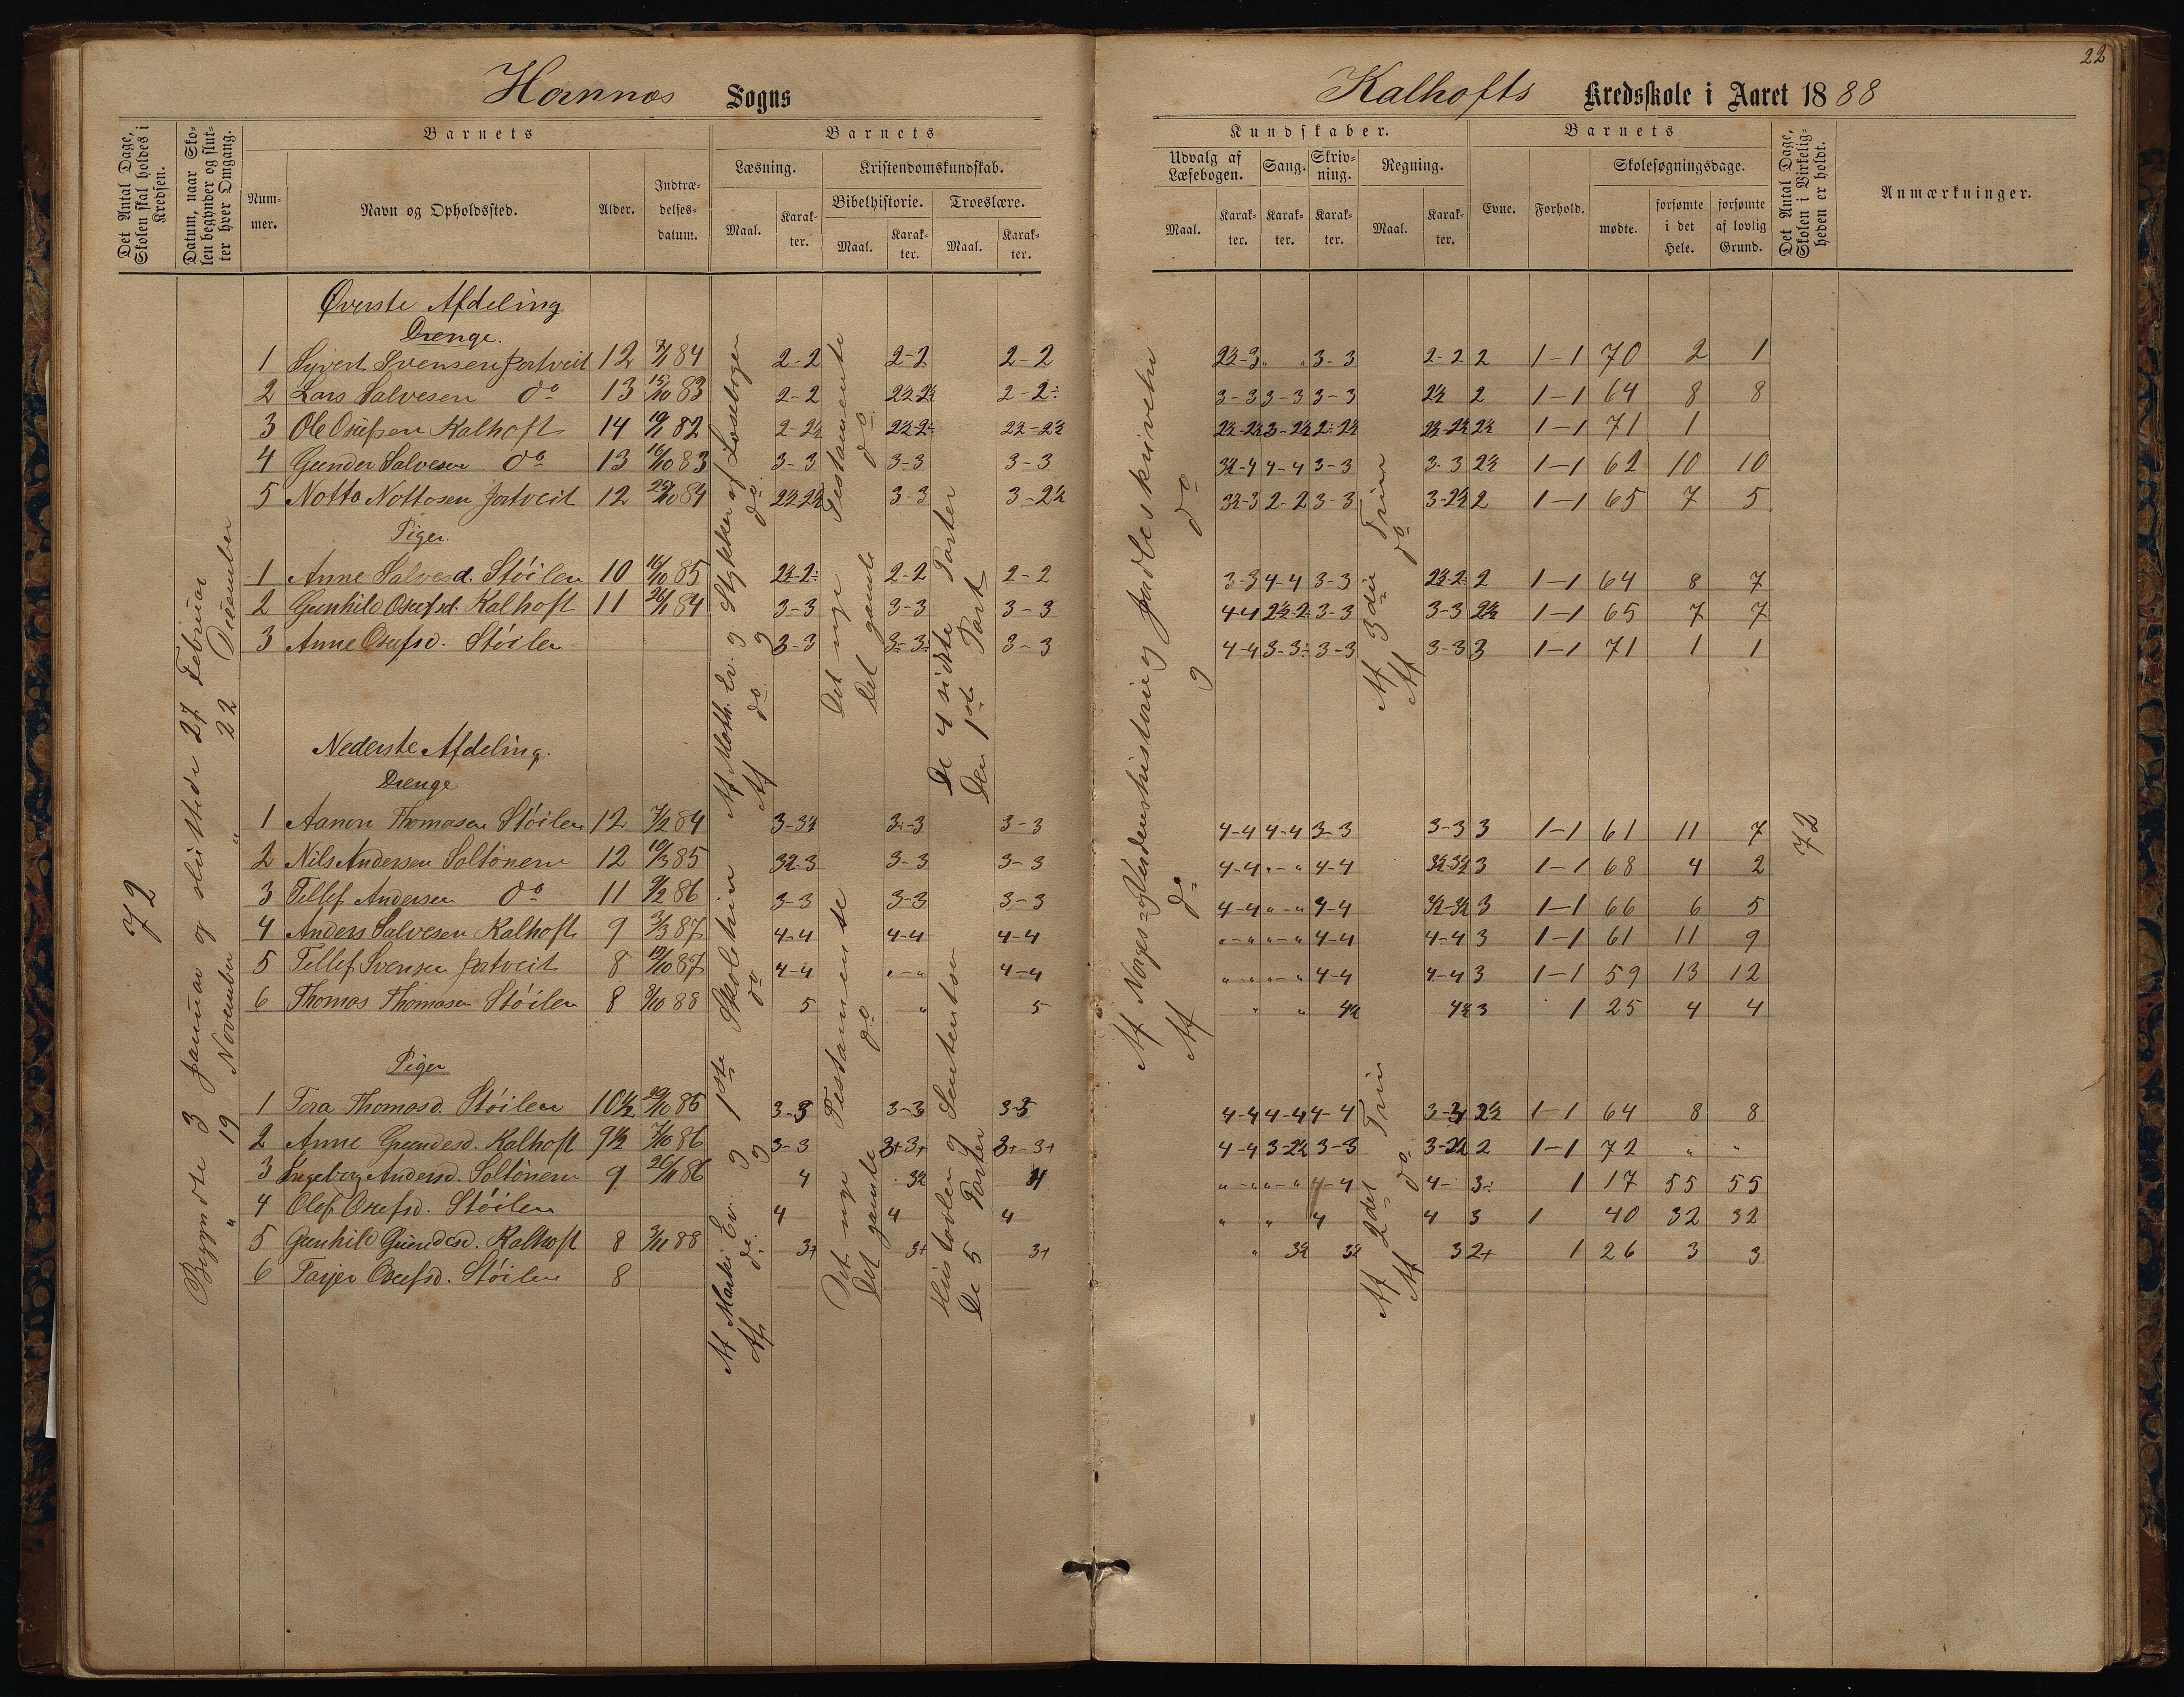 22
Hannos Sogns
Kalhofts Kredsskole i Aaret 1888
Det Antal Dage, Skolen skal holdes i Kredsen.
Datum, naar Skolen begynder og slutter hver Omgang.
Barnets
Nummer.
Navn og Opholdssted.
Alder.
Indtrædelsesdatum.
Barnets
Læsning.
Maal.
Karakter.
Kristendomskundskab.
Bibelhistorie.
Maal.
Karakter.
Troeslære.
Maal.
Karakter.
Kundskaber.
Udvalg af Læsebogen.
Maal.
Karakter.
Sang.
Karakter.
Skrivning.
Karakter.
Regning.
Maal.
Karakter.
Barnets
Evne.
Forhold.
Skolesøgningsdage.
mødte.
forsømte i det Hele.
forsømte af lovlig Grund.
Det Antal Dage, Skolen i Virkeligheden er holdt.
Anmærkninger.
72
Begyndte 3 Januar og sluttede 27 Februar
" 19 November " 22 December
Øverste Afdeling
Drenge.
1 Syvert Svensen Jortveit 12 84 2-2 2-2 2-2 2½-3 " " 3-3 2-2 2 1-1 70 2 1
2 Lars Salvesen do 13 15/10 83 2-2 2½-2½ 2-2÷ 3-3 3-3 3-3 2½ 2 1-1 64 8 8
3 Ole Osufsen Kalhoft 14 82 2-2½ 2½-2÷ 2½-2½ 2½-2½ 3-2½ 2-2½ 2½-2½ 2½ 1-1 71 1
4 Gunder Salvesen do 13 16/10 83 3-3 3-3 3-3 3½-4 4-4 3-3 3-3 2½ 1-1 62 10 10
5 Notto Nottosen Jortveit 12 25/10 84 2½-2½ 3-3 3-2½ 3½-3 2-2 3-3 3-2½ 2 1-1 65 7 5
Piger.
1 Anne Salvesd. Stöilen 10 16/10 85 2½-2÷ 2-2 2-2 3-3 4-4 3-3 2½-2÷ 2 1-1 64 8 7
2 Gunhild Osufsd. Kalhoft 11 26/1 84 3-3 3-3 3-3 4-4 2½-2÷ 3-3 3-3 2½ 1-1 65 7 7
3 Anne Osufsd. Stöilen 3-3 3-3÷ 3-3 4-4 3-3÷ 3-3 3-3 3 1-1 71 1 1
Af Math. Ev. og Stykker af Læsebogen
Af do og do
Det nye Testamente
Det gamle do
De 4 sidste Parter
Den 1ste Part
Af Norges- og Verdenshistorie og Jordbeskrivelse
Af do og do
Af 3die Trin
Af do
Nederste Afdeling.
Drenge
1 Aanon Thomasen Stöilen 12 7/2 84 3-3½ 3-3 3-3 4-4 4-4 3-3 3-3 3 1-1 61 11 7
2 Nils Andersen Soltönen 12 10/3 85 3½-3 3-3 3-3 4-4 "-" 4-4 3½-3½ 3 1-1 68 4 2
3 Tellef Andersen do 11 9/2 86 3-3 3-3 3-3 4-4 "-" 4-4 3½-3½ 3 1-1 66 6 5
4 Anders Salvesen Kalhoft 9 3/3 87 4-4 4-4 4-4 "-" "-" 4-4 4-4 3 1-1 61 11 9
5 Tellef Svensen Jortveit 8 87 4-4 "-" 4-4 "-" "-" 4-4 4-4 3 1-1 59 13 12
6 Thomas Thomasen Stöilen 8 88 5 " 5 " " 4½ 4½ 3 1 25 4 4
72
Piger
1 Tora Thomasd. Stöilen 10½ 85 3-3 3-3 3-3 4-4 4-4 4-4 3-3 2½ 1-1 64 8 8
2 Anne Gundesd. Kalhoft 9½ 7/10 86 3-3 3+3+ 3+-3+ 4-4 3-2½ 3-3 3-2½ 2 1-1 72 " "
3 Ingeborg Andersd. Soltönen 9 26/11 86 4 3½ 4 "-" "-" 4-4 4- 3÷ 1 17 55 55
4 Olef Osufsd. Stöilen 4 4 4 " " 4 4 3 1 40 32 32
5 Gunhild Gundesd. Kalhoft 8 3/11 88 3+ 3+ 3+ " 3½ 3½ 3 2+ 1 26 3 3
6 Tarjer Osufsd. Stöilen 8
Af Marki Ev. og 1ste Skoletrin
Af do. og do
Det nye Testamente
Det gamle do
Hustavlen og Sententser
De 5 Parter
Af 2det Trin
Af do